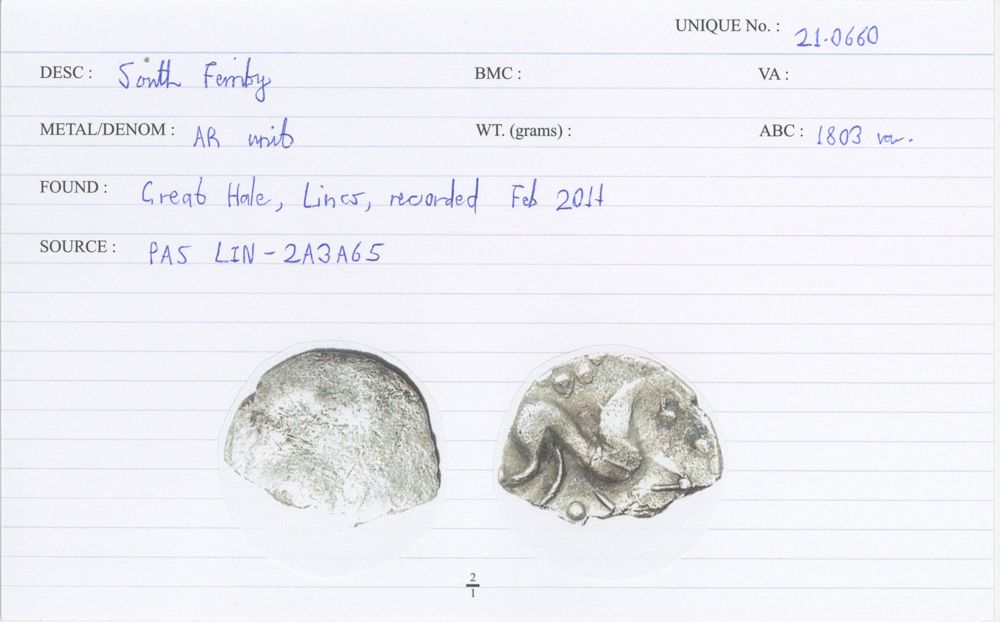 UNIQUE No. : 21.0660
DESC : South Ferriby BMC : VA :
METAL/DENOM : AR unit WT. (grams) : ABC : 1803 var.
FOUND : Great Hale, Lincs, recorded Feb 2011
SOURCE : PAS LIN - 2A3A65
2
1